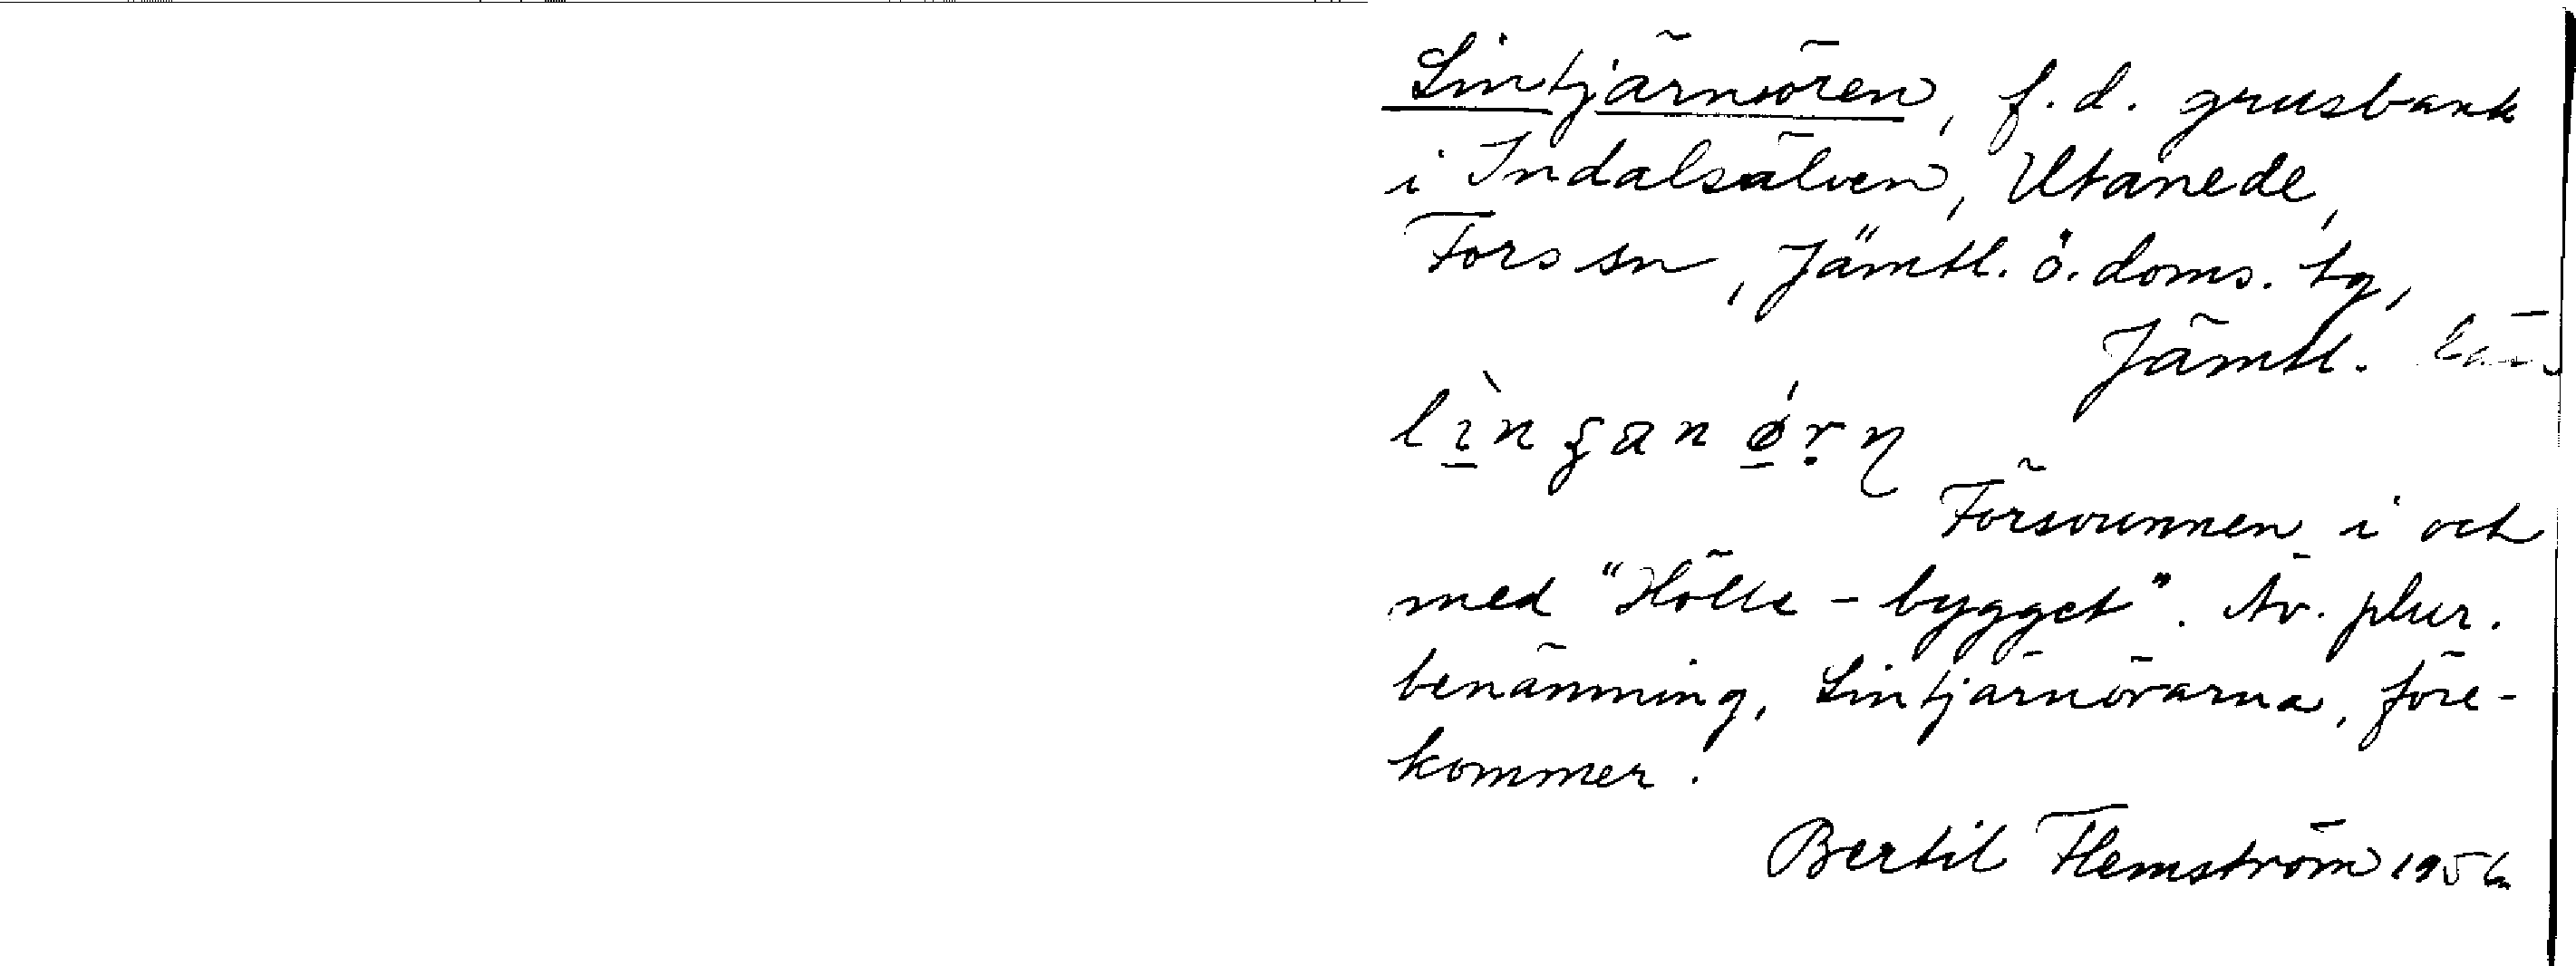 Lintjärnören, f.d. grusbank
i Indalsälven, Utanede,
Fors sn, Jämtl. ö. doms. tg,
Jämtl. län
lìnʒanǿrn
Försvunnen i och
med "Hölle-bygget". Äv. plur.
benämning, Lintjärnörarna, före-
kommer.
Bertil Flemström 1956